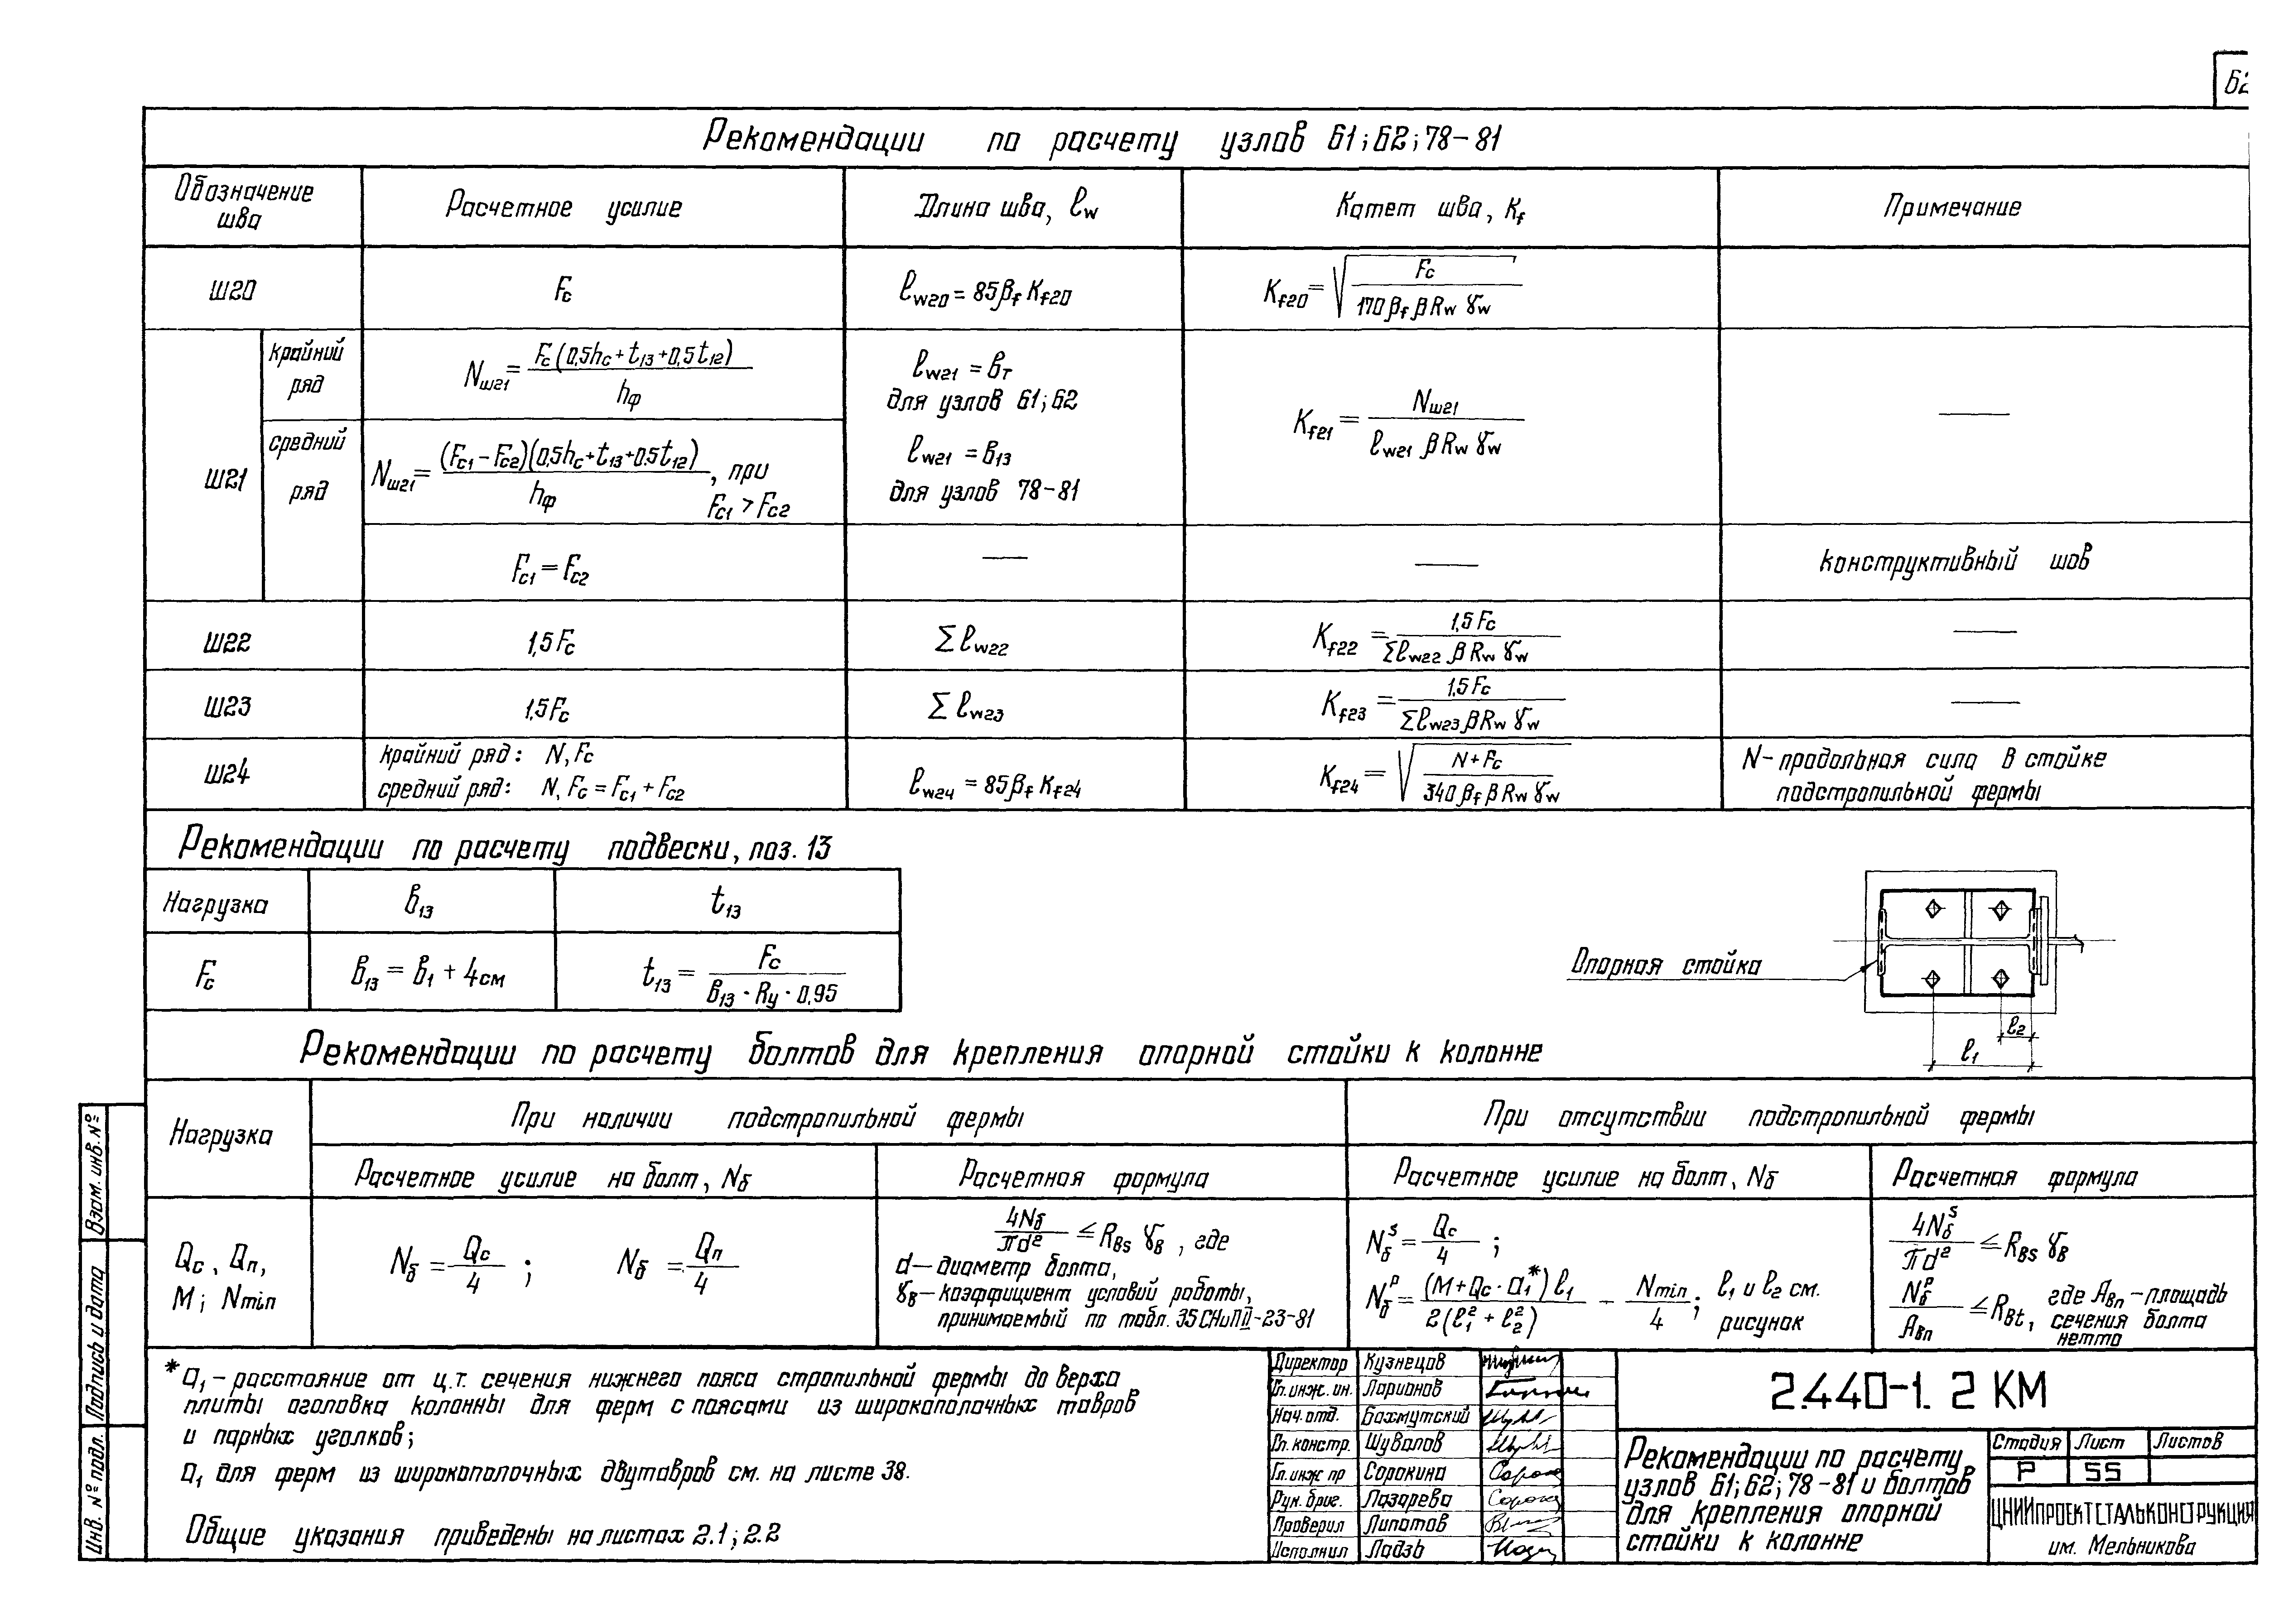 62
Рекомендации по расчету узлов 61; 62; 78–81
Обозначение шва
Расчетное усилие
Длина шва, ℓw
Катет шва, Kf
Примечание
Ш20
Fc
ℓw20 = 85βf Kf20
Kf20 = √(Fc / (170 βf β Rw γw))
Ш21
крайний ряд
Nш21 = Fc (0,5hc + t13 + 0,5t12) / hф
ℓw21 = вт
для узлов 61; 62
ℓw21 = в13
для узлов 78–81
Kf21 = Nш21 / (ℓw21 β Rw γw)
—
средний ряд
Nш21 = (Fc1 – Fc2)(0,5hc + t13 + 0.5t12) / hф, при Fc1 > Fc2
Fc1 = Fc2
—
—
конструктивный шов
Ш22
1,5 Fc
Σ ℓw22
Kf22 = 1,5 Fc / (Σℓw22 β Rw γw)
—
Ш23
1,5 Fc
Σ ℓw23
Kf23 = 1,5 Fc / (Σℓw23 β Rw γw)
—
Ш24
крайний ряд: N, Fc
средний ряд: N, Fc = Fc1 + Fc2
ℓw24 = 85βf Kf24
Kf24 = √((N + Fc) / (340 βf β Rw γw))
N – продольная сила в стойке
подстропильной фермы
Рекомендации по расчету подвески, поз. 13
Нагрузка
в13
t13
Fc
в13 = в1 + 4см
t13 = Fc / (в13 · Ry · 0,95)
Опорная стойка
ℓ2
ℓ1
Рекомендации по расчету болтов для крепления опорной стойки к колонне
Нагрузка
При наличии подстропильной фермы
При отсутствии подстропильной фермы
Расчетное усилие на болт, Nб
Расчетная формула
Расчетное усилие на болт, Nб
Расчетная формула
Qс, Qп,
М; Nmin
Nб = Qс / 4; Nб = Qп / 4
4Nб / πd² ≤ RBs γB, где
d – диаметр болта,
γB – коэффициент условий работы,
принимаемый по табл. 35 СНиП II-23-81
Nбˢ = Qс / 4;
Nбᵖ = (M + Qс · а1*) ℓ1 / 2(ℓ1² + ℓ2²) – Nmin / 4; ℓ1 и ℓ2 см.
рисунок
4Nбˢ / πd² ≤ RBs γB
Nбᵖ / ABп ≤ RBt, где ABп – площадь
сечения болта
нетто
* а1 – расстояние от ц.т. сечения нижнего пояса стропильной фермы до верха
плиты оголовка колонны для ферм с поясами из широкополочных тавров
и парных уголков;
а1 для ферм из широкополочных двутавров см. на листе 38.
Общие указания приведены на листах 2.1; 2.2
Взам. инв. №
Подпись и дата
Инв. № подл.
Директор Кузнецов
Гл. инж. ин. Ларионов
Нач. отд. Бахмутский
Гл. констр. Шувалов
Гл. инж пр Сорокина
Рук. бриг. Лазарева
Проверил Липатов
Исполнил Ладзь
2.440-1. 2 КМ
Рекомендации по расчету
узлов 61; 62; 78–81 и болтов
для крепления опорной
стойки к колонне
Стадия Лист Листов
Р 55
ЦНИИПРОЕКТСТАЛЬКОНСТРУКЦИЯ
им. Мельникова